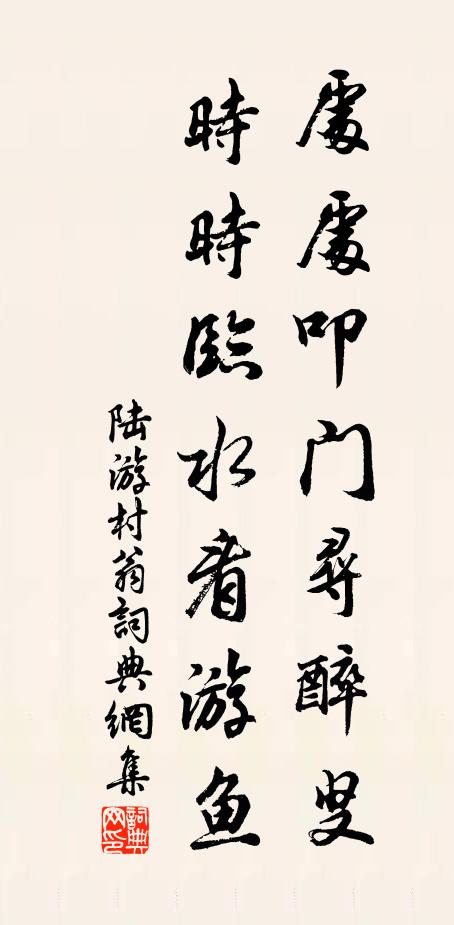 處處叩门尋醉叟
時時臨水看游鱼
陆游村翁詞典網集
詞典网印